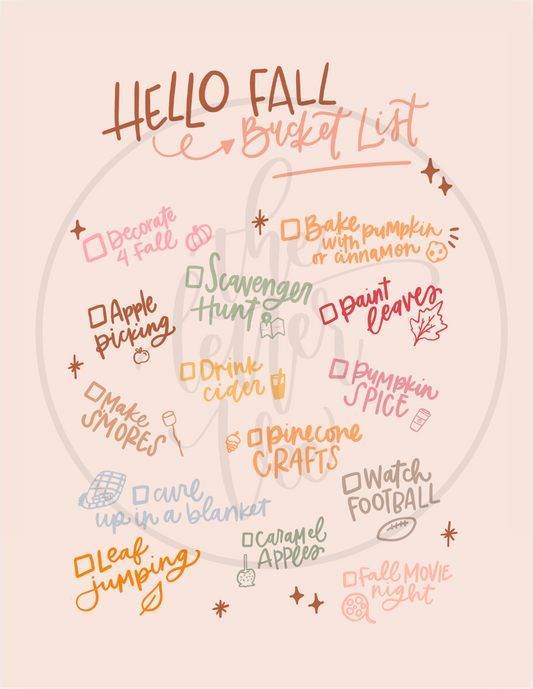 HELLO FALL
Bucket List
Decorate
4 Fall
Bake pumpkin
with
or cinnamon
Scavenger
Hunt
Apple
picking
paint
leaves
Drink
cider
Pumpkin
SPICE
Make
S'MORES
pinecone
CRAFTS
Watch
FOOTBALL
curl
up in a blanket
Caramel
Apples
Leaf
jumping
Fall MOVIE
night
the
letter